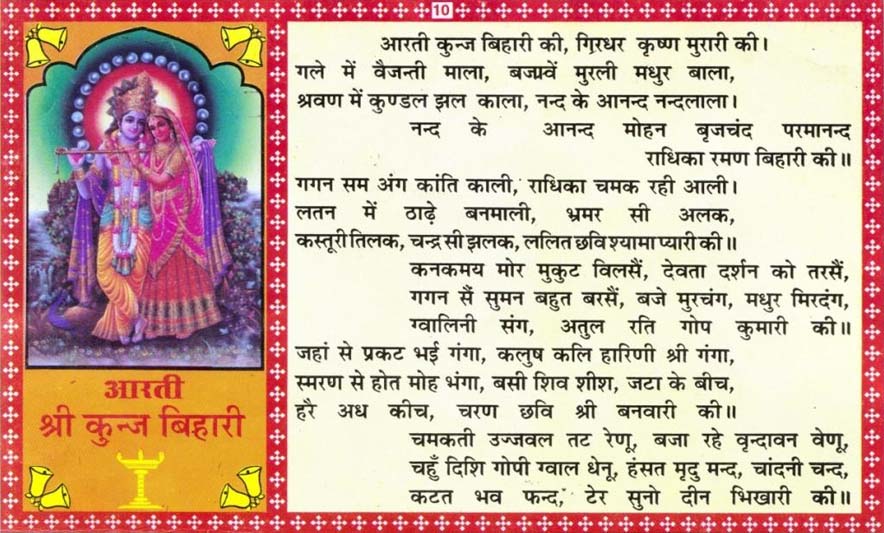 10
आरती कुन्ज बिहारी की, गिरधर कृष्ण मुरारी की।
गले में वैजन्ती माला, बजावें मुरली मधुर बाला,
श्रवण में कुण्डल झल काला, नन्द के आनन्द नन्दलाला।
नन्द के आनन्द मोहन बृजचंद परमानन्द
राधिका रमण बिहारी की॥
गगन सम अंग कांति काली, राधिका चमक रही आली।
लतन में ठाढ़े बनमाली, भ्रमर सी अलक,
कस्तूरी तिलक, चन्द्र सी झलक, ललित छवि श्यामा प्यारी की॥
कनकमय मोर मुकुट विलसैं, देवता दर्शन को तरसैं,
गगन सैं सुमन बहुत बरसैं, बजे मुरचंग, मधुर मिरदंग,
ग्वालिनी संग, अतुल रति गोप कुमारी की॥
जहां से प्रकट भई गंगा, कलुष कलि हारिणी श्री गंगा,
स्मरण से होत मोह भंगा, बसी शिव शीश, जटा के बीच,
हरै अध कीच, चरण छवि श्री बनवारी की॥
चमकती उज्जवल तट रेणू, बजा रहे वृन्दावन वेणू,
चहुँ दिशि गोपी ग्वाल धेनू, हंसत मृदु मन्द, चांदनी चन्द,
कटत भव फन्द, टेर सुनो दीन भिखारी की॥
आरती
श्री कुन्ज बिहारी